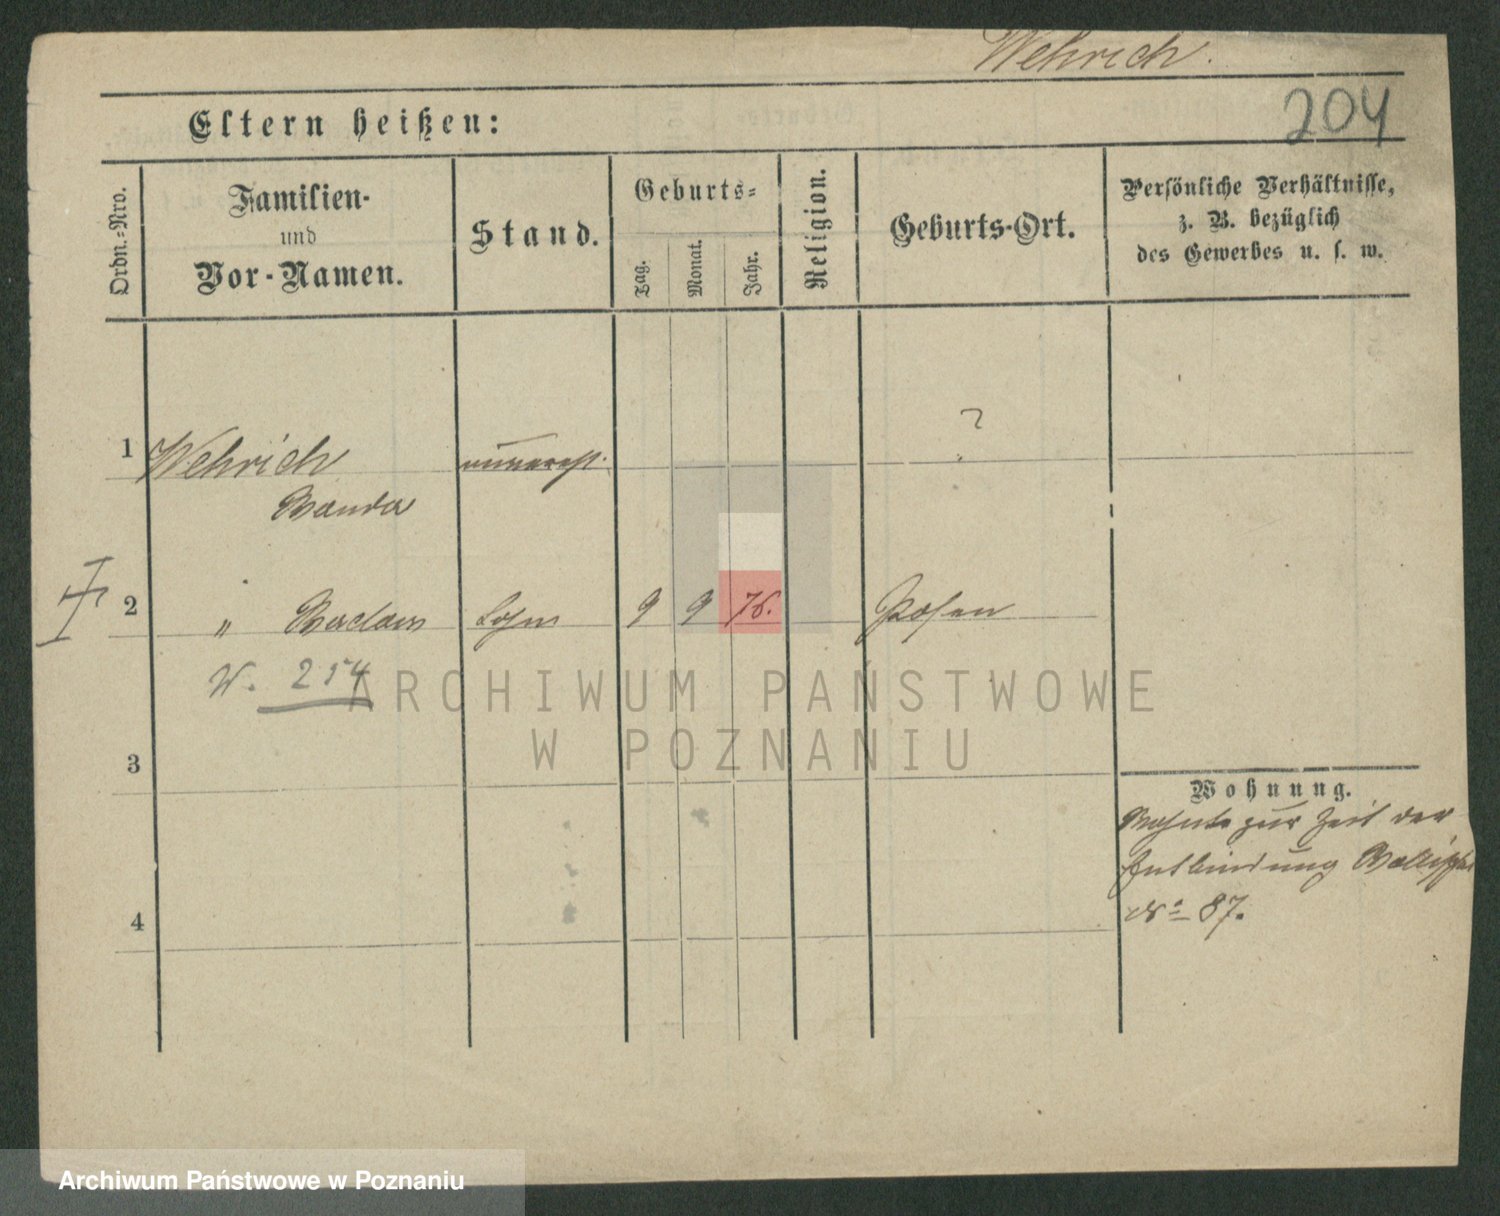 Wehrich.
204
Eltern heißen:
Ordn.-Nro.
Familien-
und
Vor-Namen.
Stand.
Geburts-
Tag.
Monat.
Jahr.
Religion.
Geburts-Ort.
Persönliche Verhältnisse,
z. B. bezüglich
des Gewerbes u. s. w.
1 Wehrich unvereh. ?
Wanda
2 " Waclaw Sohn 9 9 76. Posen
W. 254
ARCHIWUM PAŃSTWOWE
W POZNANIU
3
Wohnung.
Wohnte zur Zeit der
Entbindung Wallischei
No 87.
4
Archiwum Państwowe w Poznaniu